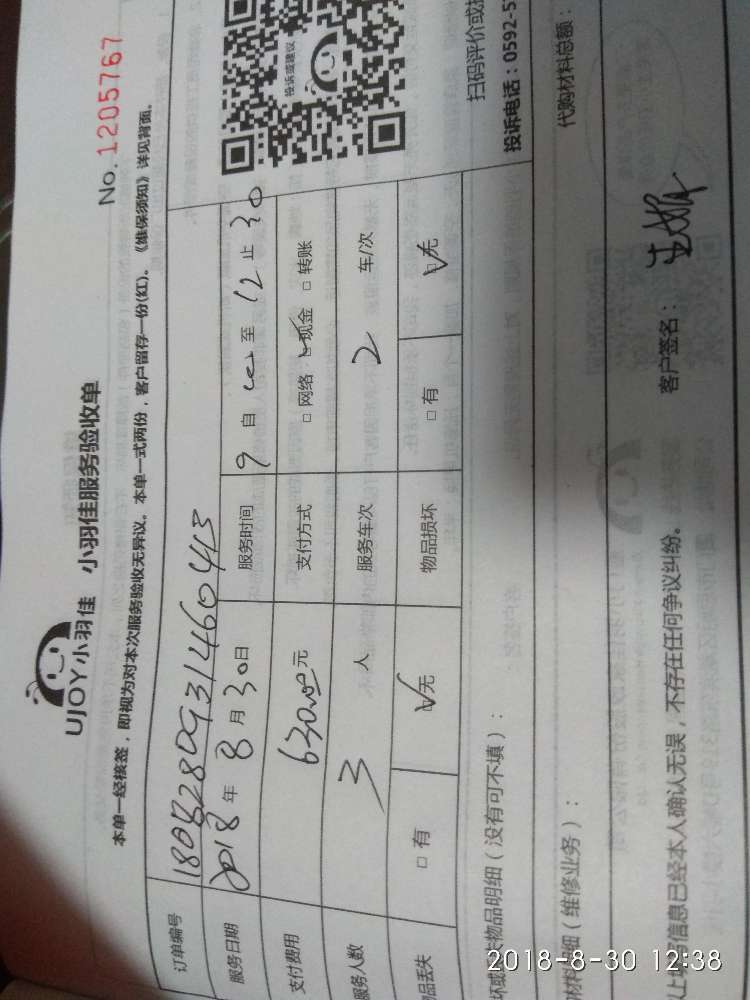 UJOY小羽佳 小羽佳服务验收单
No. 1205767
本单一经核签，即视为对本次服务验收无异议。本单一式两份，客户留存一份(红)。《维保须知》详见背面。
订单编号 1808280931460413
服务日期 2018年8月30日 服务时间 9自00至12止30
支付费用 630.00元 支付方式 □网络 ☑现金 □转账
服务人数 3人 服务车次 2 车/次
物品丢失 □有 ☑无 物品损坏 □有 ☑无
投诉或建议
扫码评价或
投诉电话：0592-5
坏或 失物品明细（没有可不填）：
材料明细（维修业务）：
代购材料总额：
以上 写信息已经本人确认无误，不存在任何争议纠纷。
客户签名：
2018-8-30 12:38